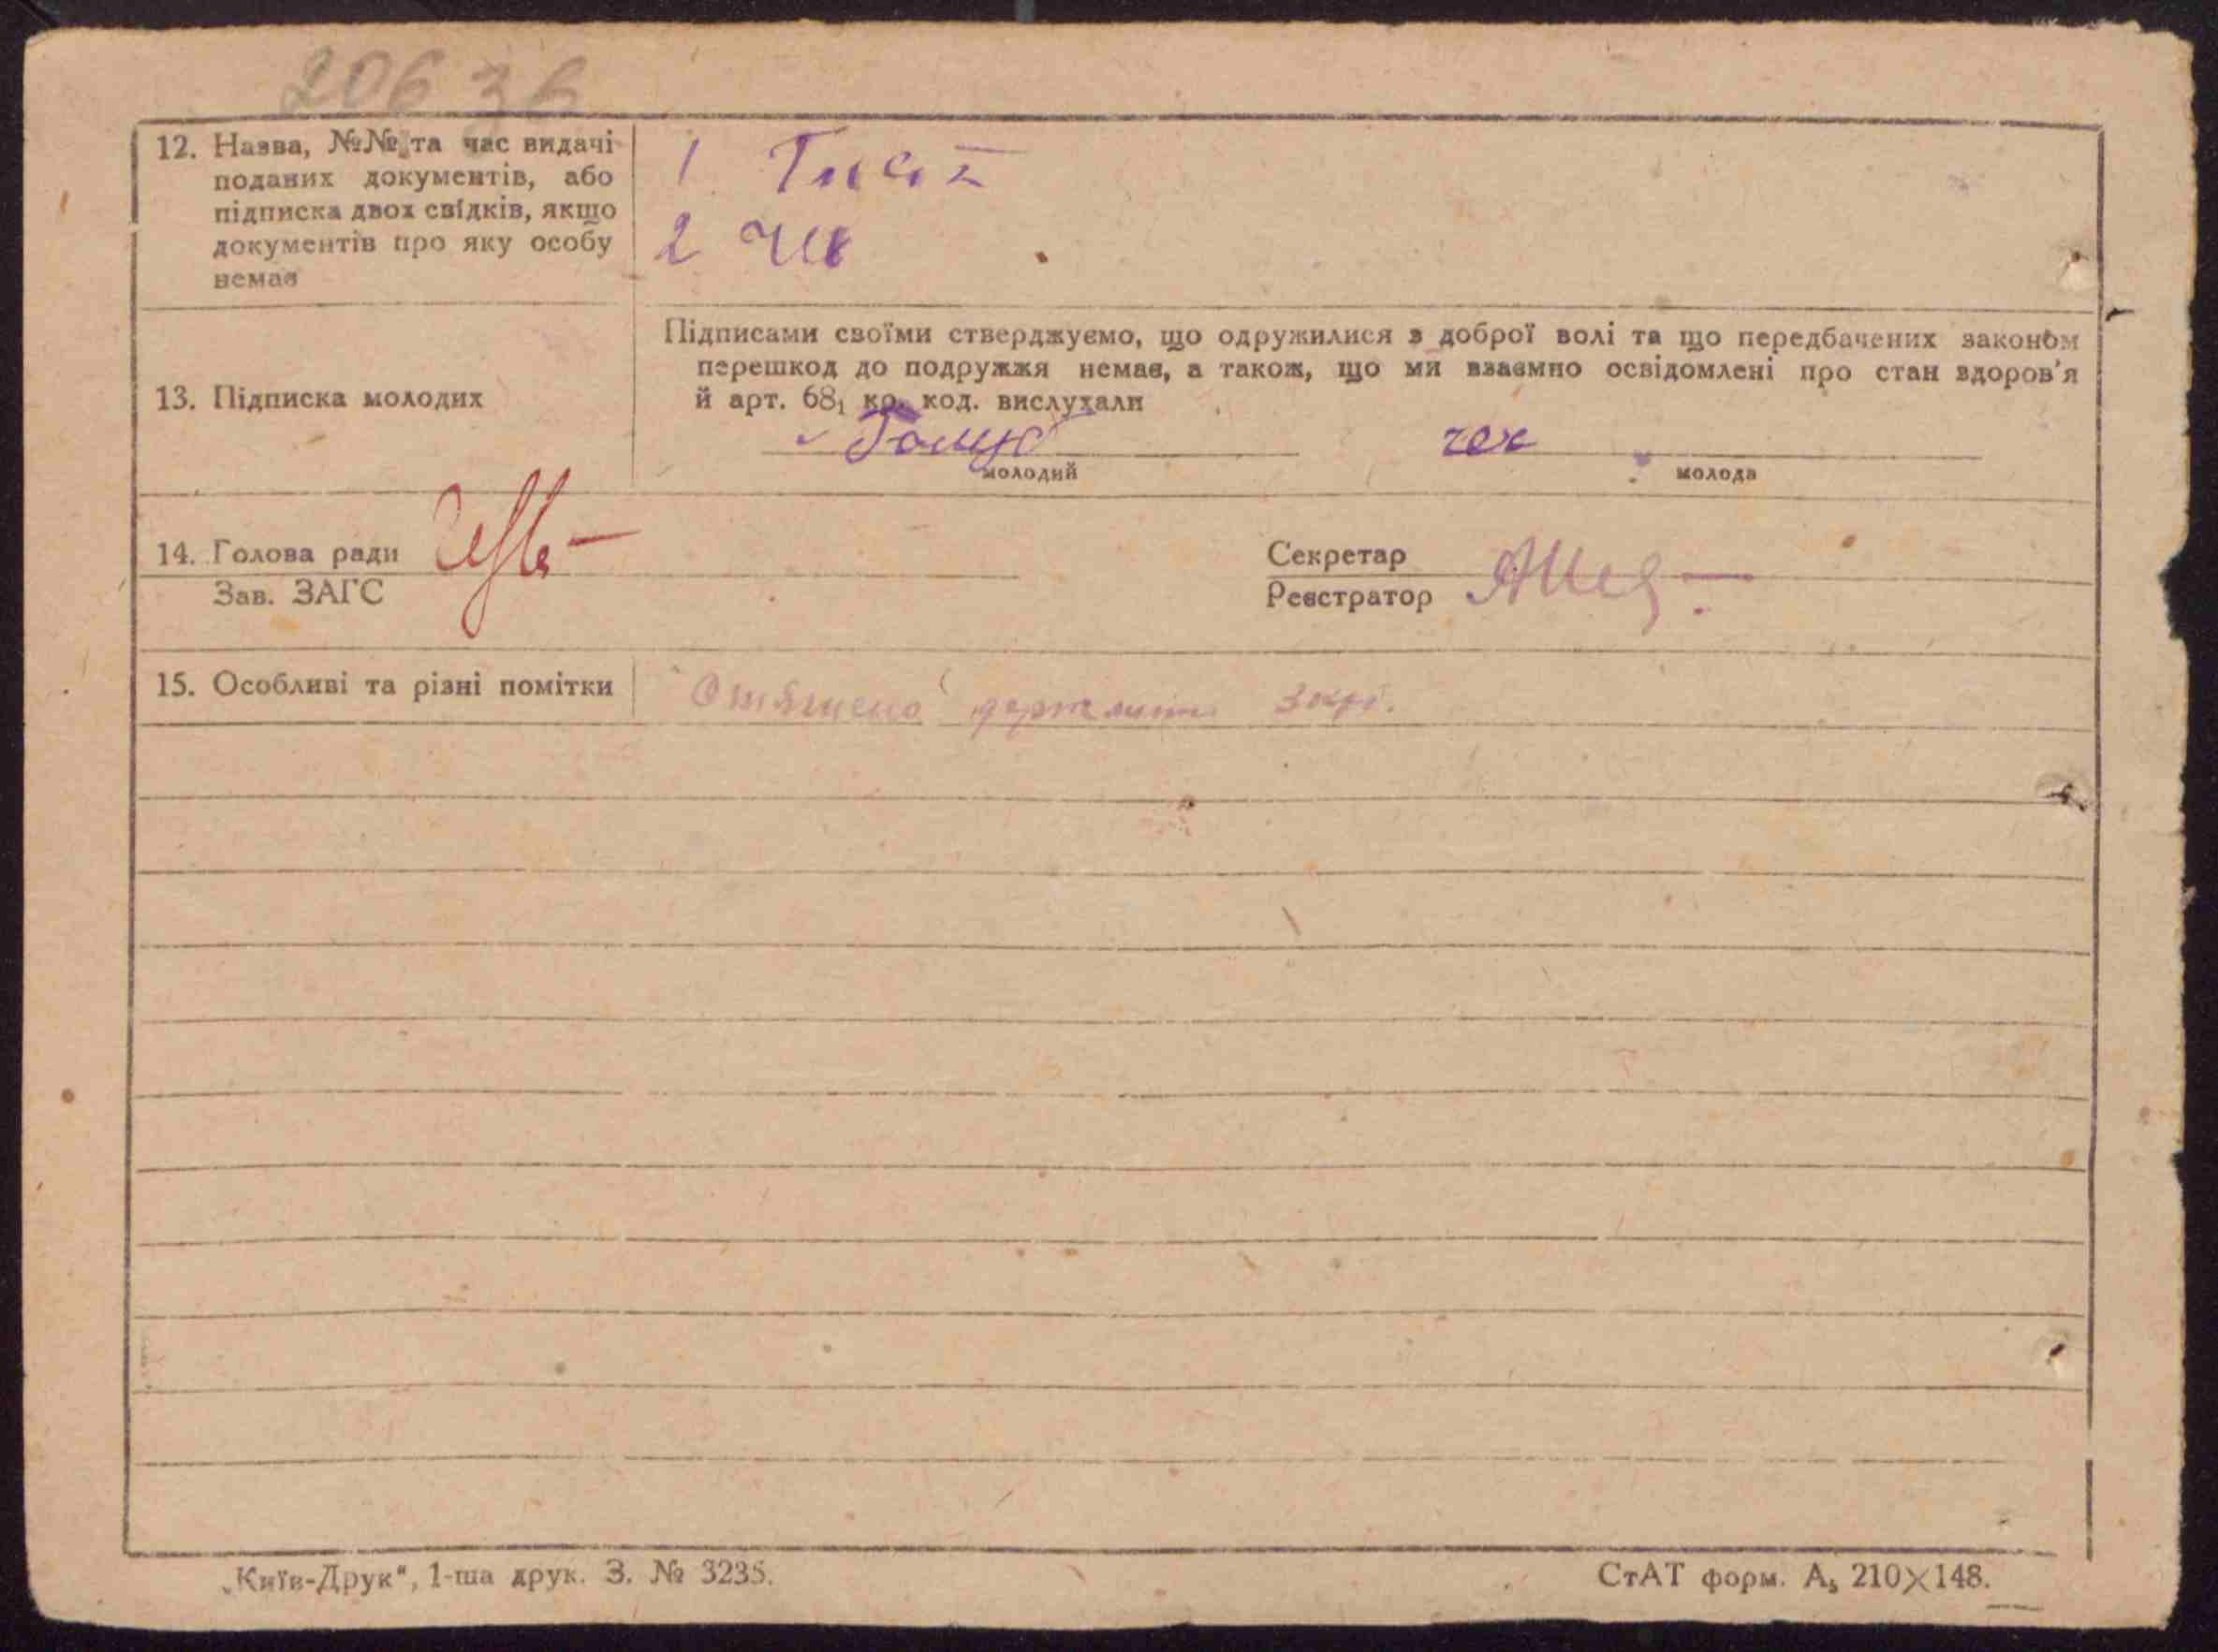 206 36
12. Назва, №№ та час видачі
поданих документів, або
підписка двох свідків, якщо
документів про яку особу
немає
1
2
13. Підписка молодих
Підписами своїми стверджуємо, що одружилися з доброї волі та що передбачених законом
перешкод до подружжя немає, а також, що ми взаємно освідомлені про стан здоров'я
й арт. 68₁ кр. код. вислухали
молодий
молода
14. Голова ради
Зав. ЗАГС
Секретар
Реєстратор
15. Особливі та різні помітки
„Київ-Друк“, 1-ша друк. З. № 3235.
СтАТ форм. А₅ 210×148.